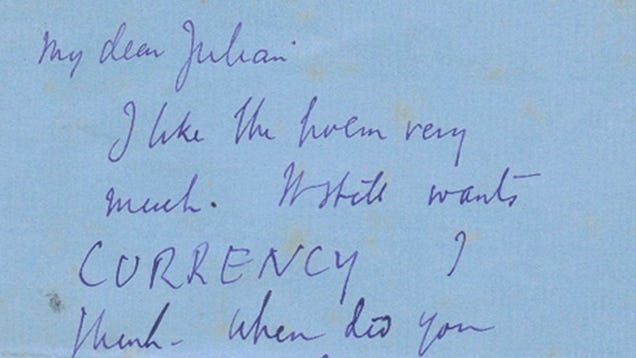 My dear Julian
I like the poem very
much. It still wants
CURRENCY I
think - when did you